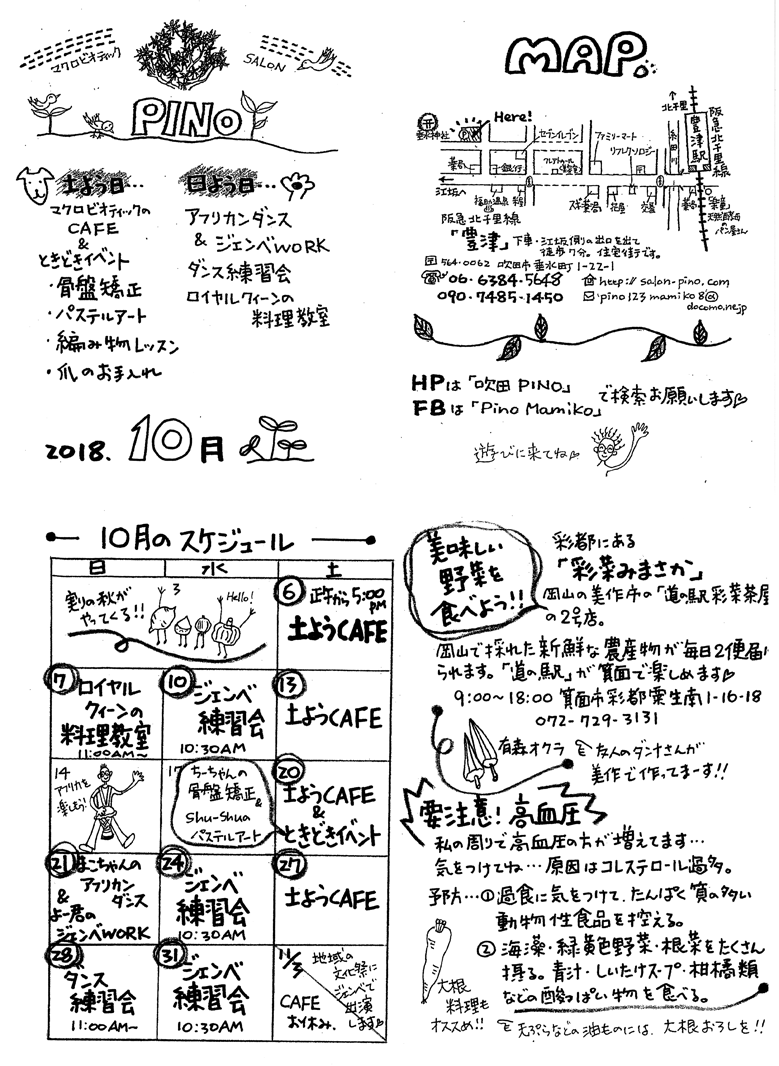 マクロビオティック SALON
PINO
土よう日…
マクロビオティックの
CAFE
&
ときどきイベント
・骨盤矯正
・パステルアート
・編み物レッスン
・爪のお手入れ
日よう日…
アフリカンダンス
& ジェンベWORK
ダンス練習会
ロイヤルクィーンの
料理教室
2018. 10月
MAP.
Here!
垂水神社
セブンイレブン
ファミリーマート
リフレクソロジー
糸田川
↑北千里
豊津駅
阪急北千里線
江坂へ
薬局
花屋
交番
天然酵母のパン屋さん
阪急北千里線
「豊津」下車・江坂側の出口を出て
徒歩7分。住宅街です。
〒564-0062 吹田市垂水町1-22-1
☎06-6384-5648
http://salon-pino.com
090-7485-1450
✉pino123mamiko8@
docomo.ne.jp
HPは「吹田PINO」
FBは「Pino Mamiko」
で検索お願いします♡
遊びに来てね♡
10月のスケジュール
日 水 土
実りの秋が
やってくる!!
3
Hello!
6 正午から5:00
PM
土ようCAFE
7 ロイヤル
クィーンの
料理教室
11:00AM〜
10 ジェンベ
練習会
10:30AM
13
土ようCAFE
14
アフリカを
楽しもう!
17 ちーちゃんの
骨盤矯正
&
Shu-Shua
パステルアート
20
土ようCAFE
&
ときどきイベント
21 まこちゃんの
アフリカン
ダンス
&
よー君の
ジェンベWORK
24
ジェンベ
練習会
10:30AM
27
土ようCAFE
28
ダンス
練習会
11:00AM〜
31
ジェンベ
練習会
10:30AM
11/3
地域の
文化祭に
ジェンベで
出演
します♡
CAFE
お休み.
美味しい
野菜を
食べよう!!
彩都にある
「彩菜みまさか」
岡山の美作市の「道の駅彩菜茶屋
の2号店。
岡山で採れた新鮮な農産物が毎日2便届け
られます。「道の駅」が箕面で楽しめます♡
9:00〜18:00 箕面市彩都粟生南1-16-18
072-729-3131
有森オクラ
友人のダンナさんが
美作で作ってまーす!!
要注意! 高血圧
私の周りで高血圧の方が増えてます…
気をつけてね…原因はコレステロール過多。
予防…①過食に気をつけて、たんぱく質の多い
動物性食品を控える。
②海藻・緑黄色野菜・根菜をたくさん
摂る。青汁・しいたけスープ・柑橘類
などの酸っぱい物を食べる。
大根
料理も
オススメ!!
天ぷらなどの油ものには、大根おろしを!!